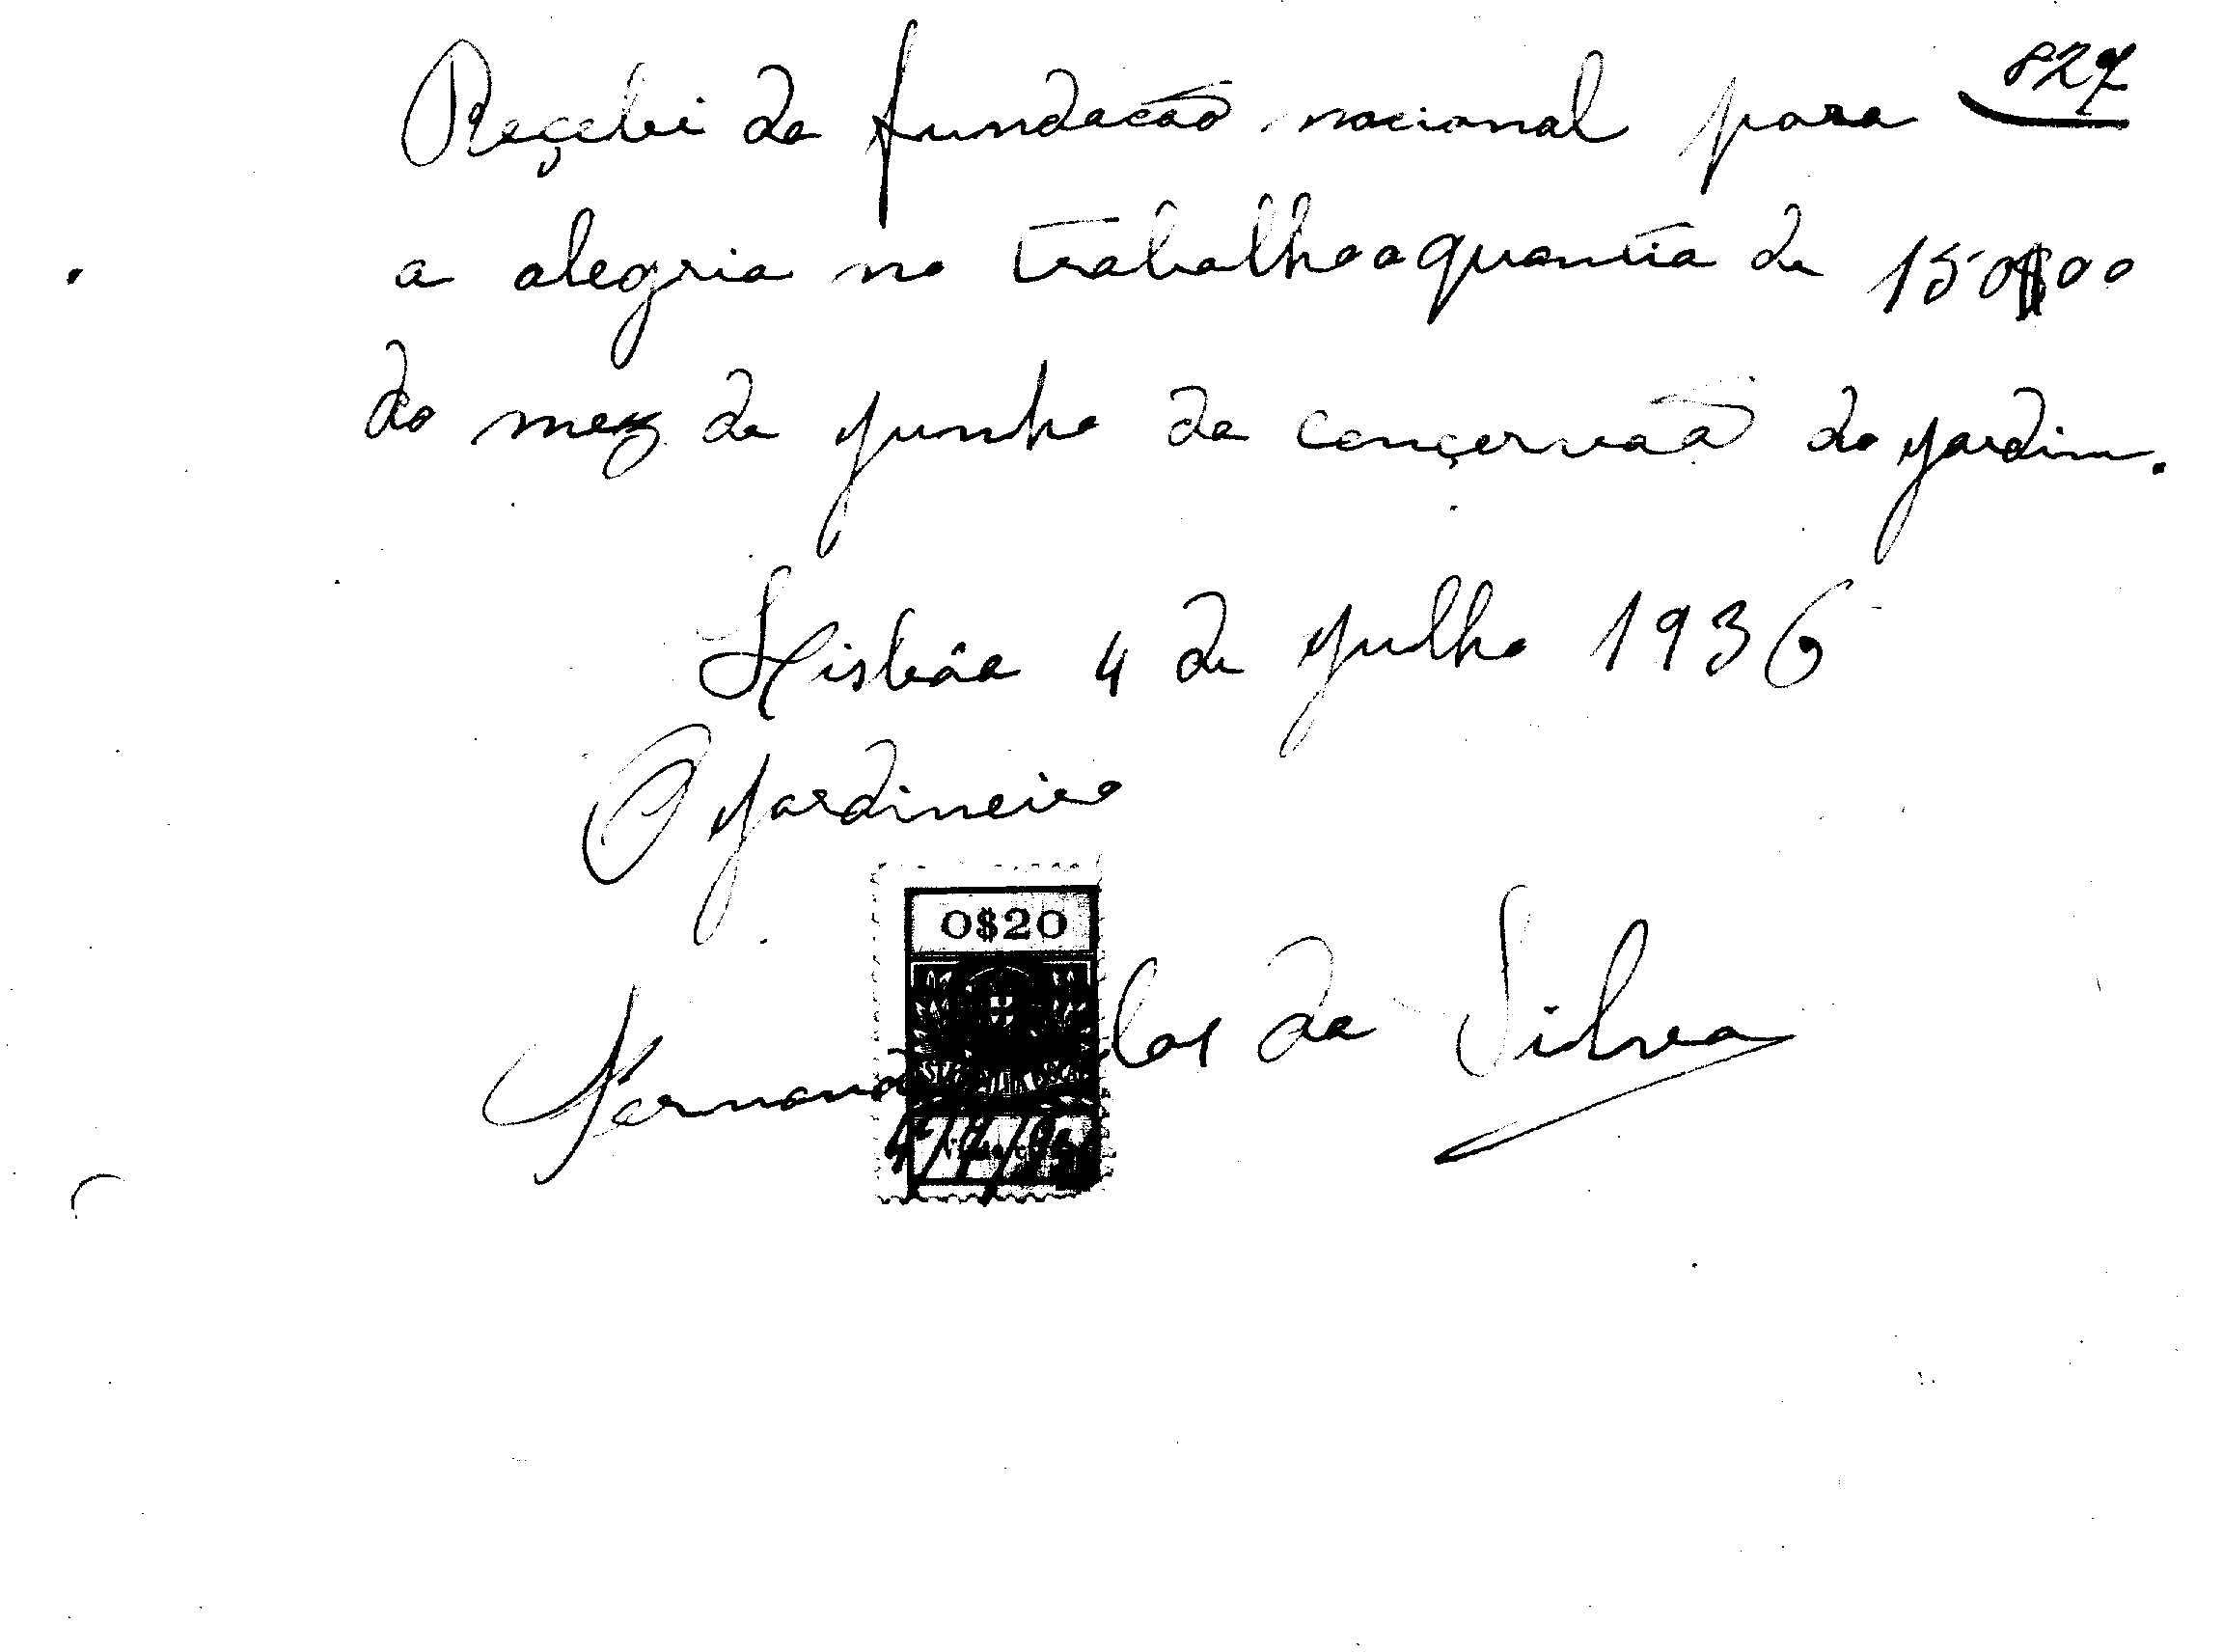 827
Reçebi da fundacão nacional para
a alegria no trabalho a quantia de 150$00
do mez de junho da conçervaã do jardim.
Lisbôa 4 de julho 1936
O jardineiro
0$20
Fernando
da Silva
4/7/936